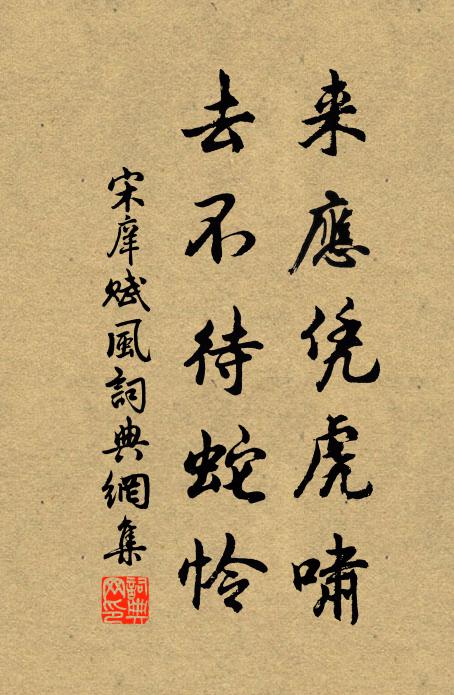 来應凭虎啸
去不待蛇怜
宋庠赋風詞典網集
詞典网印